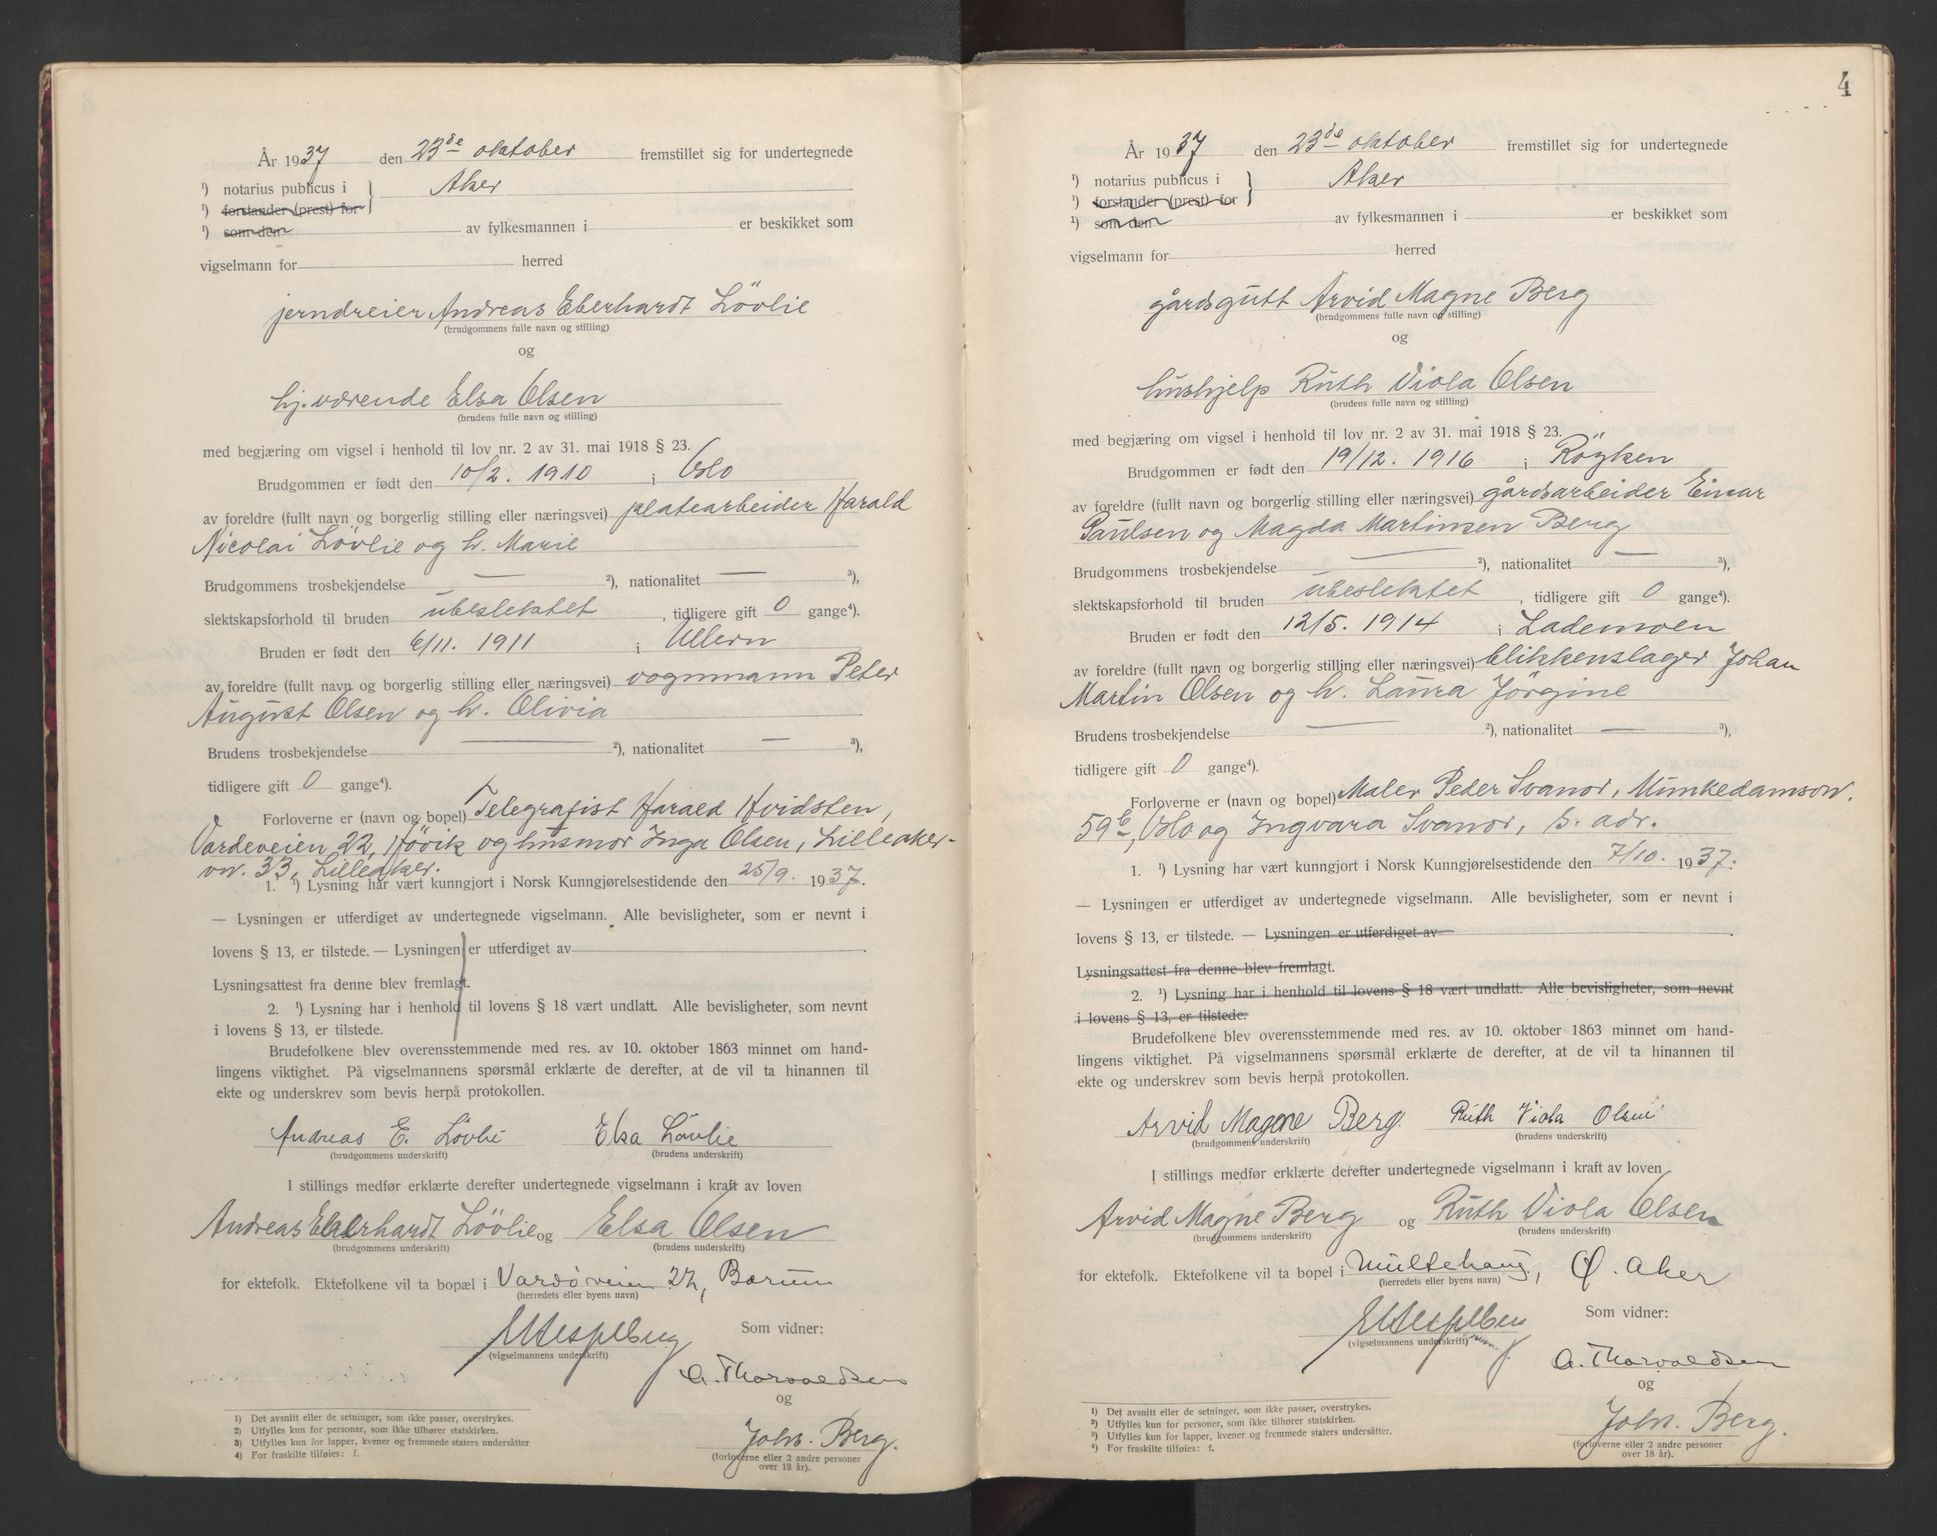 År 1937 den 23de oktober fremstillet sig for undertegnede
¹) notarius publicus i } Aker
¹) forstander (prest) for
¹) som den av fylkesmannen i er beskikket som
vigselmann for herred
jerndreier Andreas Eberhardt Lövlie
(brudgommens fulle navn og stilling)
og
hj.værende Elsa Olsen
(brudens fulle navn og stilling)
med begjæring om vigsel i henhold til lov nr. 2 av 31. mai 1918 § 23.
Brudgommen er født den 10/2. 1910 i Oslo
av foreldre (fullt navn og borgerlig stilling eller næringsvei) platearbeider Harald
Nicolai Lövlie og h. Marie
Brudgommens trosbekjendelse — ²), nationalitet — ³),
slektskapsforhold til bruden ubeslektet, tidligere gift 0 gange⁴).
Bruden er født den 6/11. 1911 i Ullern
av foreldre (fullt navn og borgerlig stilling eller næringsvei) vognmann Peter
August Olsen og h. Olivia
Brudens trosbekjendelse — ²), nationalitet — ³),
tidligere gift 0 gange⁴).
Forloverne er (navn og bopel) Telegrafist Harald Hvidsten,
Vardeveien 22, Hövik og husmor Inga Olsen, Lilleaker-
vn. 33, Lilleaker.
1. ¹) Lysning har vært kunngjort i Norsk Kunngjørelsestidende den 25/9. 1937.
— Lysningen er utferdiget av undertegnede vigselmann. Alle bevisligheter, som er nevnt i
lovens § 13, er tilstede. — Lysningen er utferdiget av
Lysningsattest fra denne blev fremlagt.
2. ¹) Lysning har i henhold til lovens § 18 vært undlatt. Alle bevisligheter, som nevnt
i lovens § 13, er tilstede.
Brudefolkene blev overensstemmende med res. av 10. oktober 1863 minnet om hand-
lingens viktighet. På vigselmannens spørsmål erklærte de derefter, at de vil ta hinannen til
ekte og underskrev som bevis herpå protokollen.
Andreas E. Lövlie Elsa Lövlie
(brudgommens underskrift) (brudens underskrift)
I stillings medfør erklærte derefter undertegnede vigselmann i kraft av loven
Andreas Eberhardt Lövlie og Elsa Olsen
(brudgommens underskrift) (brudens underskrift)
for ektefolk. Ektefolkene vil ta bopæl i Vardöveien 22, Bærum
(herredets eller byens navn)
Som vidner:
(vigselmannens underskrift)
A. Thorvaldsen
og
Johs. Berg.
(forloverne eller 2 andre personer
over 18 år).
1) Det avsnitt eller de setninger, som ikke passer, overstrykes.
2) Utfylles kun for personer, som ikke tilhører statskirken.
3) Utfylles kun for lapper, kvener og fremmede staters undersåtter
4) For fraskilte tilføies: f.
4
År 1937 den 23de oktober fremstillet sig for undertegnede
¹) notarius publicus i } Aker
¹) forstander (prest) for
¹) som den av fylkesmannen i er beskikket som
vigselmann for herred
gårdsgutt Arvid Magne Berg
(brudgommens fulle navn og stilling)
og
hushjelp Ruth Viola Olsen
(brudens fulle navn og stilling)
med begjæring om vigsel i henhold til lov nr. 2 av 31. mai 1918 § 23.
Brudgommen er født den 19/12. 1916 i Röyken
av foreldre (fullt navn og borgerlig stilling eller næringsvei) gårdsarbeider Einar
Paulsen og Magda Martinsen Berg
Brudgommens trosbekjendelse — ²), nationalitet — ³),
slektskapsforhold til bruden ubeslektet, tidligere gift 0 gange⁴).
Bruden er født den 12/5. 1914 i Lademoen
av foreldre (fullt navn og borgerlig stilling eller næringsvei) blikkenslager Johan
Martin Olsen og h. Laura Jörgine
Brudens trosbekjendelse — ²), nationalitet — ³),
tidligere gift 0 gange⁴).
Forloverne er (navn og bopel) Maler Peder Svanor, Munkedamsvn.
59b, Oslo og Ingvara Svanor, s. adr.
1. ¹) Lysning har vært kunngjort i Norsk Kunngjørelsestidende den 7/10. 1937.
— Lysningen er utferdiget av undertegnede vigselmann. Alle bevisligheter, som er nevnt i
lovens § 13, er tilstede. — Lysningen er utferdiget av
Lysningsattest fra denne blev fremlagt.
2. ¹) Lysning har i henhold til lovens § 18 vært undlatt. Alle bevisligheter, som nevnt
i lovens § 13, er tilstede.
Brudefolkene blev overensstemmende med res. av 10. oktober 1863 minnet om hand-
lingens viktighet. På vigselmannens spørsmål erklærte de derefter, at de vil ta hinannen til
ekte og underskrev som bevis herpå protokollen.
Arvid Magne Berg. Ruth Viola Olsen
(brudgommens underskrift) (brudens underskrift)
I stillings medfør erklærte derefter undertegnede vigselmann i kraft av loven
Arvid Magne Berg og Ruth Viola Olsen
(brudgommens underskrift) (brudens underskrift)
for ektefolk. Ektefolkene vil ta bopel i Multehaug, Ø. Aker
(herredets eller byens navn)
Som vidner:
(vigselmannens underskrift)
A. Thorvaldsen
og
Johs. Berg.
(forloverne eller 2 andre personer
over 18 år).
¹) Det avsnitt eller de setninger, som ikke passer, overstrykes.
²) Utfylles kun for personer, som ikke tilhører statskirken.
³) Utfylles kun for lapper, kvener og fremmede staters undersåtter.
⁴) For fraskilte tilføies: f.